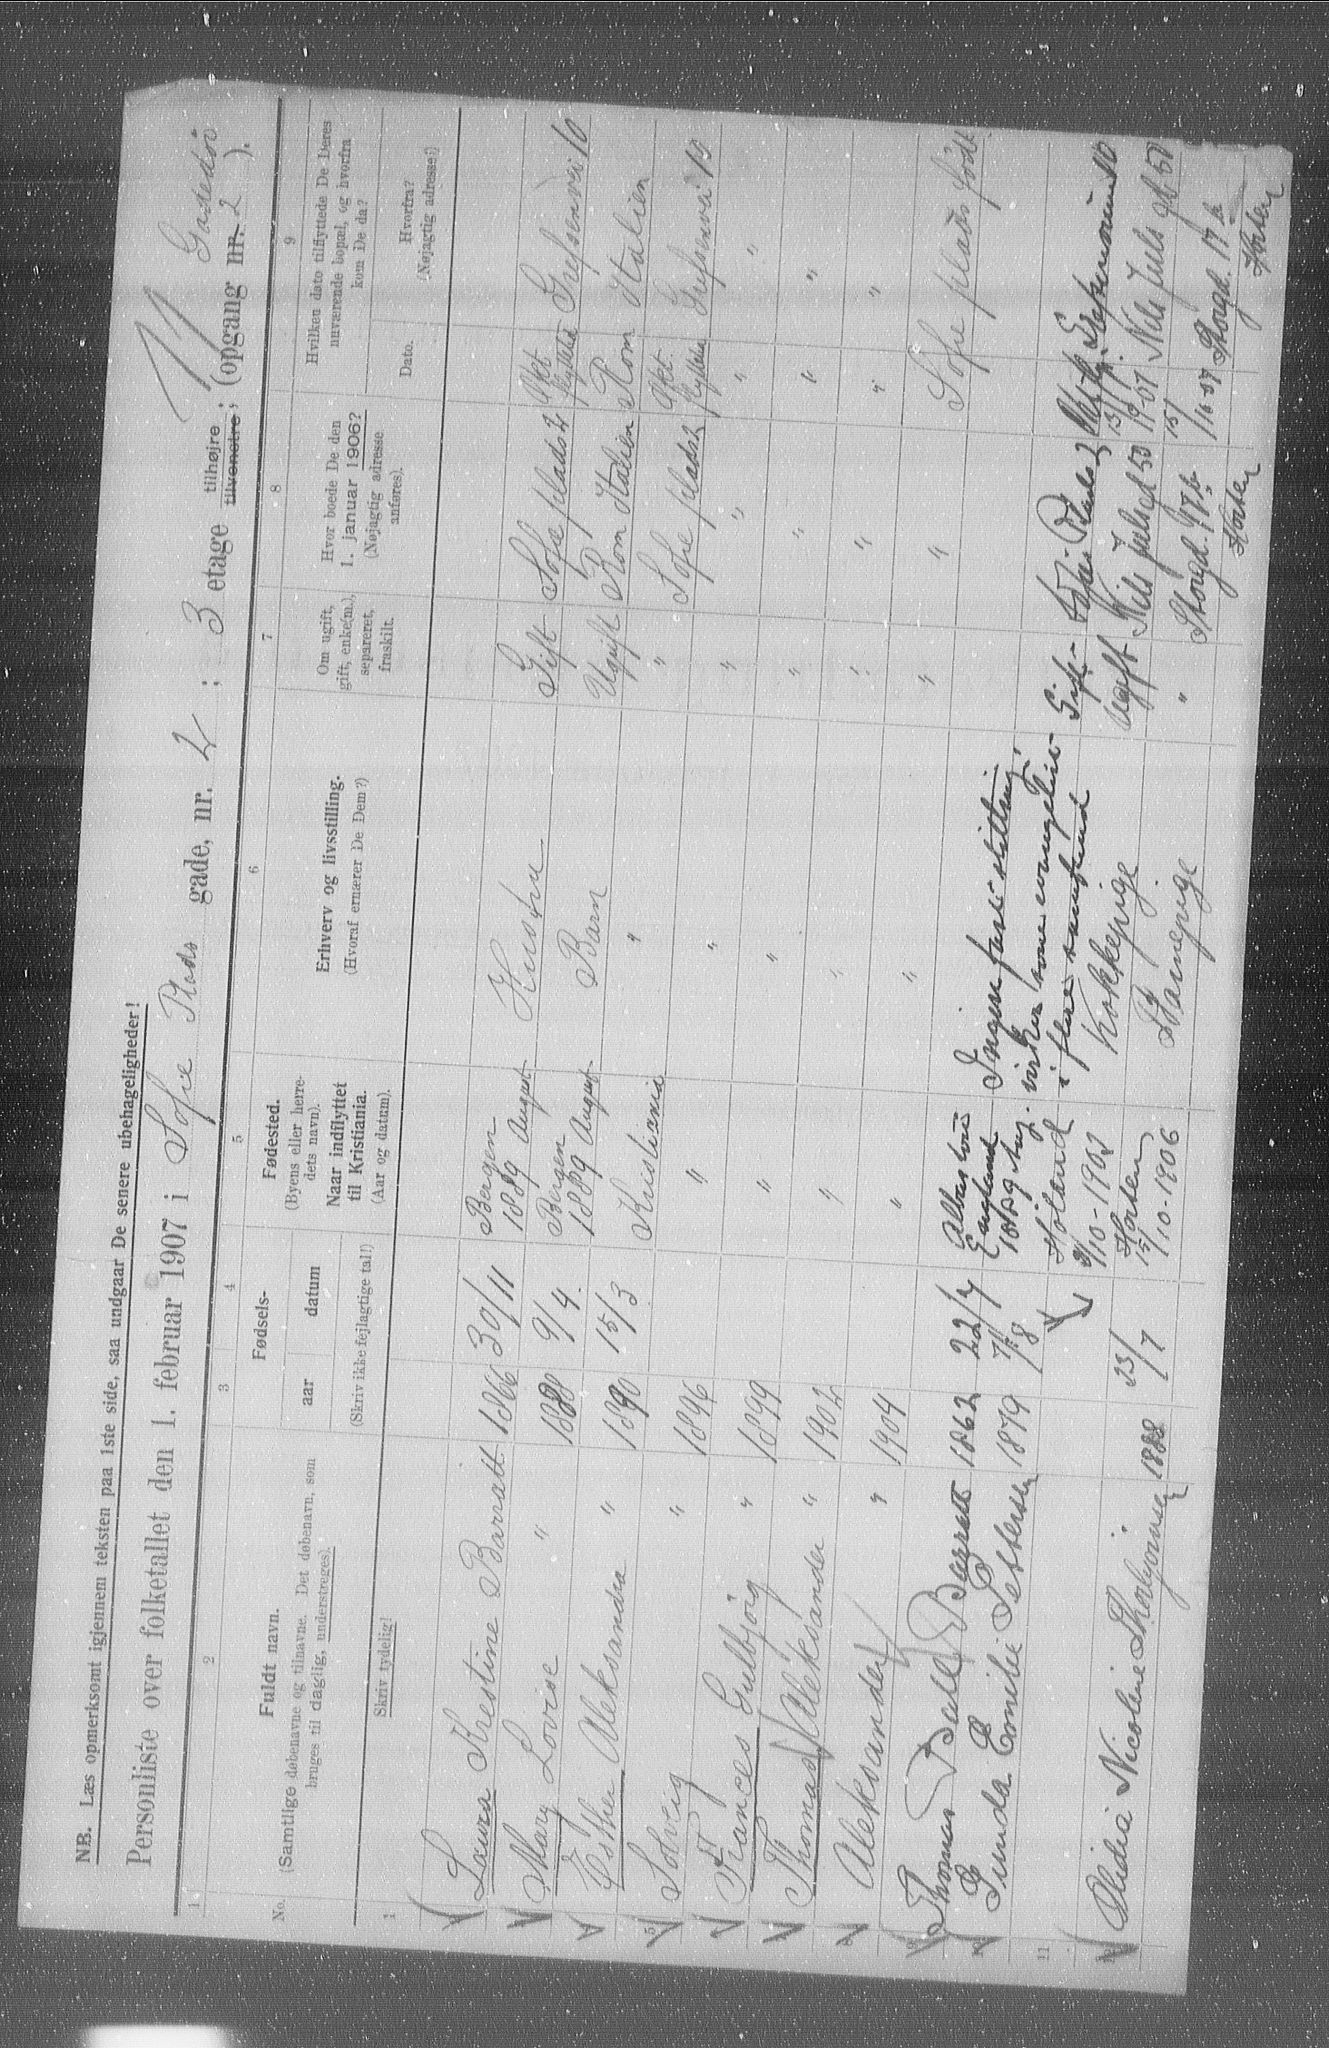 NB. Læs opmerksomt igjennem teksten paa 1ste side, saa undgaar De senere ubehageligheder!
Personliste over folketallet den 1. februar 1907 i Sofie Plads gade, nr. 2 ; 3 etage tilhøjre tilvenstre; (opgang nr. 2 ).
1 2 3 4 5 6 7 8 9
No.
Fuldt navn.
(Samtlige døbenavne og tilnavne. Det døbenavn, som
bruges til daglig, understreges).
Skriv tydelig!
Fødsels-
aar datum
(Skriv ikke fejlagtige tal!)
Fødested.
(Byens eller herre-
dets navn).
Naar indflyttet
til Kristiania.
(Aar og datum).
Erhverv og livsstilling.
(Hvoraf ernærer De Dem?)
Om ugift,
gift, enke(m.),
separeret,
fraskilt.
Hvor boede De den
1. januar 1906?
(Nøjagtig adresse
anføres).
Hvilken dato tilflyttede De Deres
nuværende bopæl, og hvorfra
kom De da?
Dato.
Hvorfra?
(Nøjagtig adresse!)
1
Laura Krestine Barratt 1866 30/11 Bergen 1889 August Hustru Gift Sofie plads 2 Okt flyttetid Grefsenvei 10
Mary Lovise " 1888 9/4 Bergen 1889 August Barn Ugift Rom Italien Rom Italien
Esther Aleksandra " 1890 15/3 Kristiania " " Sofie plads 2 Okt. flyttetid Grefsenvei 10
5 Solveig " 1896 " " " " " "
Frances Gulbjørg " 1899 " " " " " "
Thomas Aleksander " 1902 " " " " " "
8 Aleksander " 1904 " " " " Sofie plads født
Thomas Ball Barratt 1862 22/7 England 1889 Aug. Ingen fast stilling, virker som evangelist i flere samfund Gift Sofies Plads 2
Linda Emilie Pettersen 1879 7/8 Høland 9/10-1902 Kokkepige Ugift Nils Juels gd 50 15/1 1907 Nils Juels gd 50
11
Olidia Nicoline 1888 23/7 Horten 15/10-1906 Stuepige " Storgd. 17 b Horten 15/1 07 Storgd. 17 b Horten